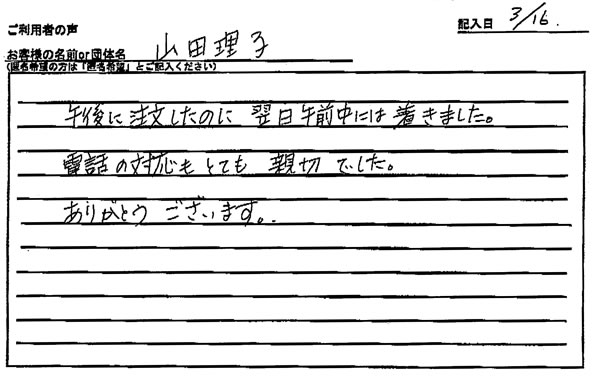 ご利用者の声
記入日 3/16.
お客様の名前or団体名 山田理子
(匿名希望の方は「匿名希望」とご記入ください)
午後に注文したのに 翌日午前中には着きました。
電話の対応もとても 親切でした。
ありがとう ございます。.